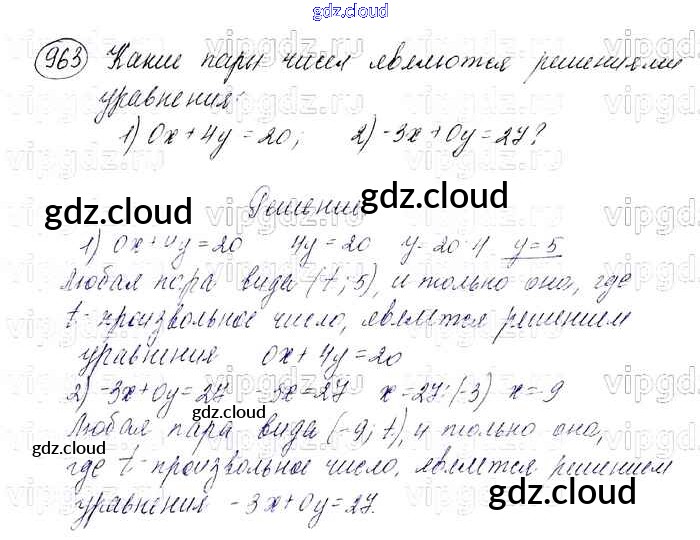 gdz.cloud
963 Какие пары чисел являются решениями
уравнения:
1) 0x+4y=20; 2) -3x+0y=27?
Решение
1) 0x+4y=20 4y=20 y=20:4 y=5
Любая пара вида (t;5), и только она, где
t-произвольное число, является решением
уравнения 0x+4y=20
2) -3x+0y=27 -3x=27 x=27:(-3) x=-9
Любая пара вида (-9;t), и только она,
где t-произвольное число, является решением
уравнения -3x+0y=27.
gdz.cloud
gdz.cloud
gdz.cloud
gdz.cloud
gdz.cloud
gdz.cloud
gdz.cloud